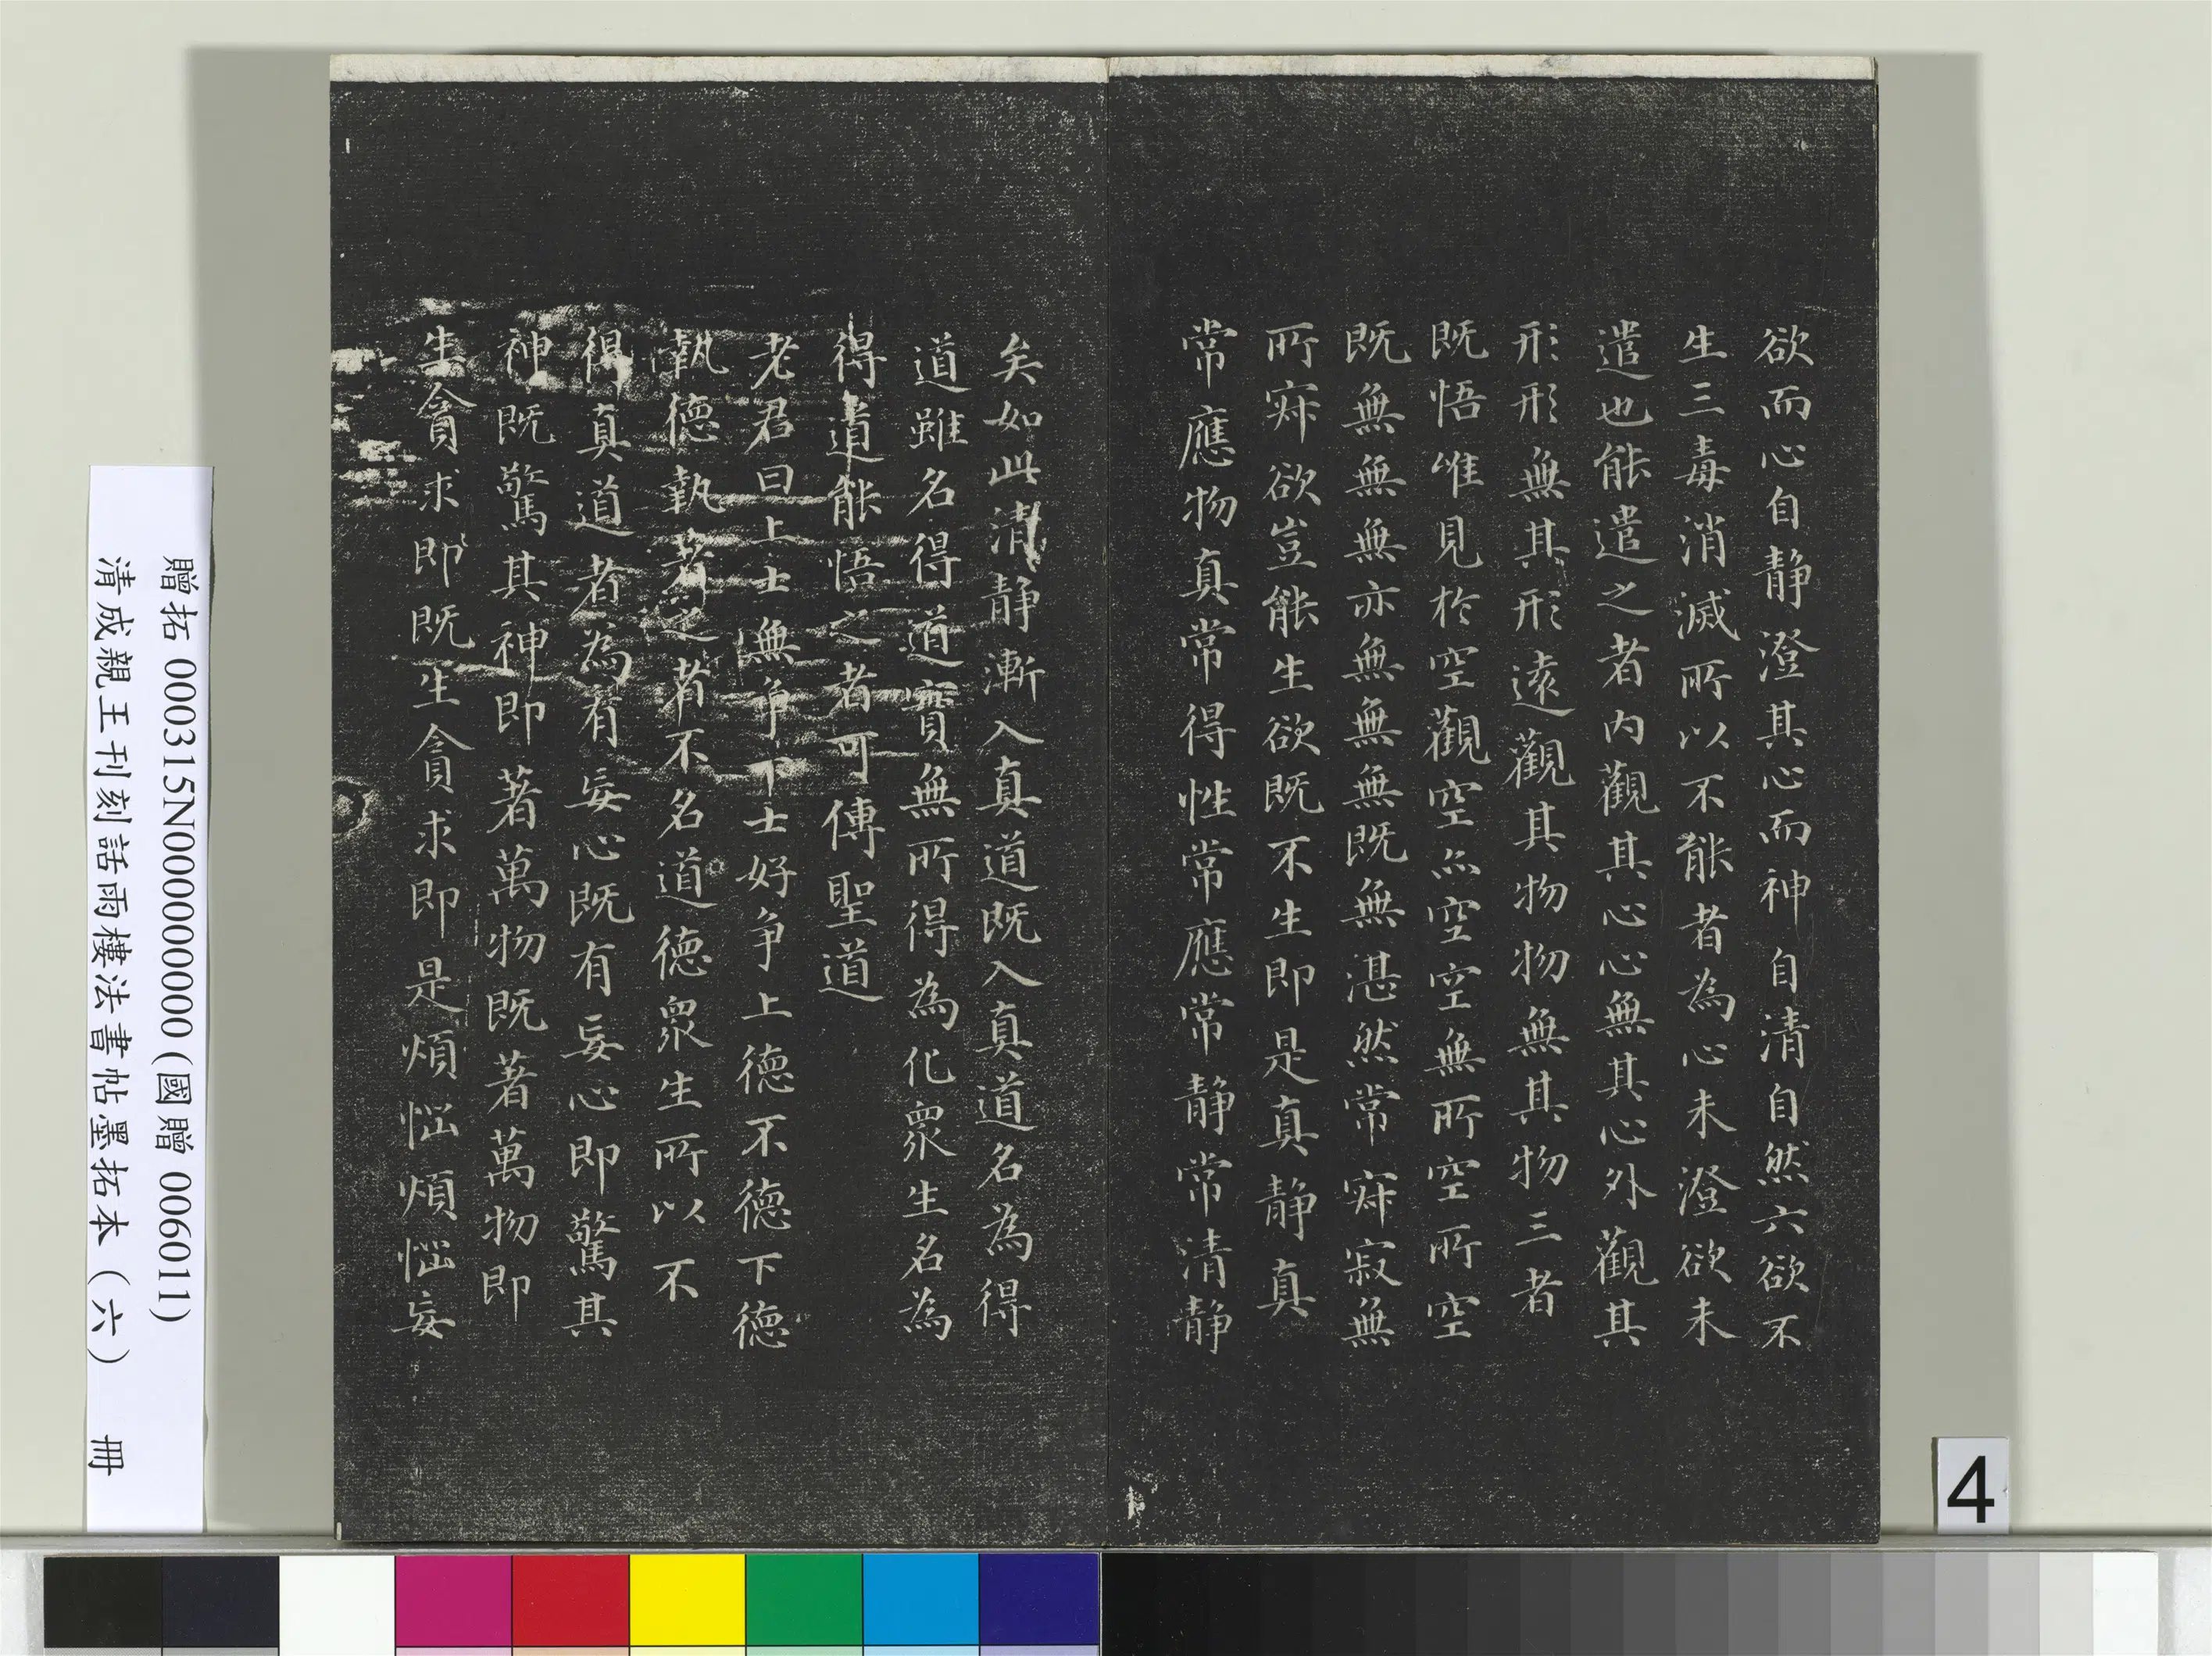 欲而心自静澄其心而神自清自然六欲不
生三毒消滅所以不能者為心未澄欲未
遣也能遣之者内觀其心心無其心外觀其
形形無其形遠觀其物物無其物三者
既悟唯見於空觀空亦空空無所空所空
既無無無亦無無無既無湛然常寂寂無
所寂欲豈能生欲既不生即是真静真
常應物真常得性常應常静常清静
矣如此清静漸入真道既入真道名為得
道雖名得道實無所得為化衆生名為
得道能悟之者可傳聖道
老君曰上士無争下士好争上德不德下德
執德執著之者不名道德衆生所以不
得真道者為有妄心既有妄心即驚其
神既驚其神即著萬物既著萬物即
生貪求即既生貪求即是煩惱煩惱妄
贈拓 000315N000000000 (國贈 006011)
清成親王刊刻詒雨樓法書帖墨拓本（六） 冊
4